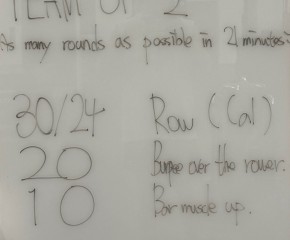 TEAM OF 2
As many rounds as possible in 21 minutes:
30/24 Row (Cal)
20 Burpee over the rower.
10 Bar muscle up.